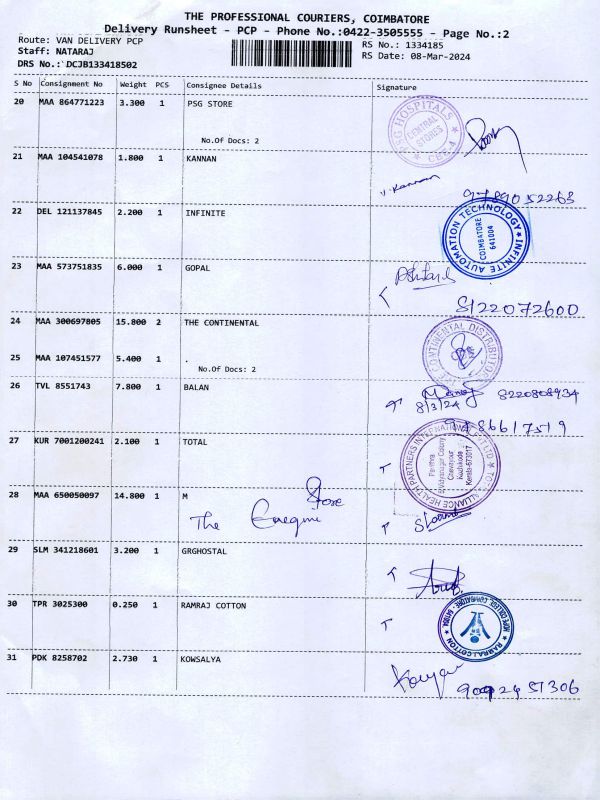 THE PROFESSIONAL COURIERS, COIMBATORE
Delivery Runsheet - PCP - Phone No.:0422-3505555 - Page No.:2
Route: VAN DELIVERY PCP
Staff: NATARAJ
DRS No.: DCJB133418502
RS No.: 1334185
RS Date: 08-Mar-2024
S No Consignment No Weight PCS Consignee Details Signature
20 MAA 864771223 3.300 1 PSG STORE
No.Of Docs: 2
PSG HOSPITALS
CENTRAL STORES
21 MAA 104541078 1.800 1 KANNAN
V. Kannan
9789052263
22 DEL 121137845 2.200 1 INFINITE
INFINITE AUTOMATION TECHNOLOGY
COIMBATORE
641004
23 MAA 573751835 6.000 1 GOPAL
8122072600
24 MAA 300697805 15.800 2 THE CONTINENTAL
25 MAA 107451577 5.400 1 .
No.Of Docs: 2
26 TVL 8551743 7.800 1 BALAN
8/3/24
8220808934
27 KUR 7001200241 2.100 1 TOTAL
ALLIANCE HEALTH PARTNERS INTERNATIONAL PVT LTD
Vidyanagar Colony
Chevayur
Kozhikode
Kerala-673017
28 MAA 650050097 14.800 1 M
The
Store
29 SLM 341218601 3.200 1 GRGHOSTAL
30 TPR 3025300 0.250 1 RAMRAJ COTTON
RAMRAJ COTTON
31 PDK 8258702 2.730 1 KOWSALYA